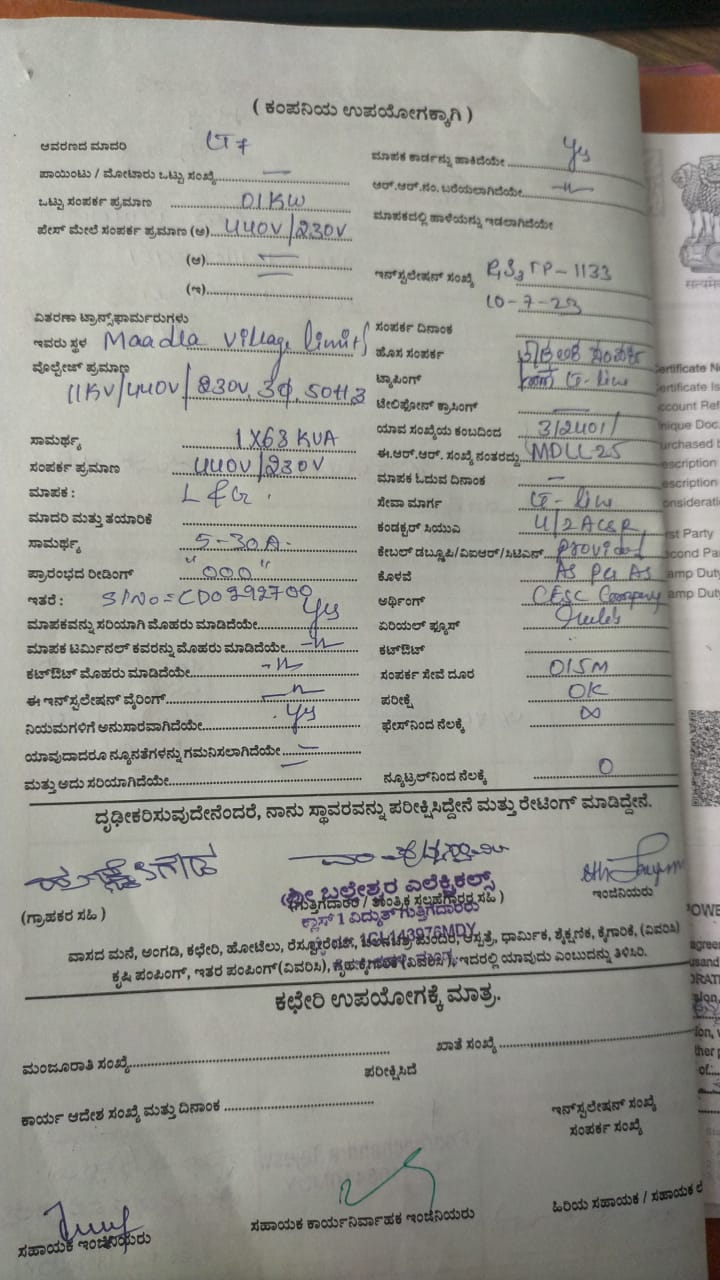 ( ಕಂಪನಿಯ ಉಪಯೋಗಕ್ಕಾಗಿ )
ಆವರಣದ ಮಾದರಿ LT 7
ಪಾಯಿಂಟು / ಮೋಟಾರು ಒಟ್ಟು ಸಂಖ್ಯೆ —
ಒಟ್ಟು ಸಂಪರ್ಕ ಪ್ರಮಾಣ 01KW
ಫೇಸ್ ಮೇಲೆ ಸಂಪರ್ಕ ಪ್ರಮಾಣ (ಅ) 440V/230V
(ಆ)
(ಇ)
ವಿತರಣಾ ಟ್ರಾನ್ಸ್‌ಫಾರ್ಮರುಗಳು
ಇವರು ಸ್ಥಳ Maadla Village limits
ವೋಲ್ಟೇಜ್ ಪ್ರಮಾಣ
11KV/440V/230V, 3Φ, 50Hz
ಸಾಮರ್ಥ್ಯ 1X63 KVA
ಸಂಪರ್ಕ ಪ್ರಮಾಣ 440V/230V
ಮಾಪಕ : L&G.
ಮಾದರಿ ಮತ್ತು ತಯಾರಿಕೆ
ಸಾಮರ್ಥ್ಯ 5-30A.
ಪ್ರಾರಂಭದ ರೀಡಿಂಗ್ "000"
ಇತರೆ : S/No=CD0392709
ಮಾಪಕವನ್ನು ಸರಿಯಾಗಿ ಮೊಹರು ಮಾಡಿದೆಯೇ Yes
ಮಾಪಕ ಟರ್ಮಿನಲ್ ಕವರನ್ನು ಮೊಹರು ಮಾಡಿದೆಯೇ —"—
ಕಟ್‌ಔಟ್ ಮೊಹರು ಮಾಡಿದೆಯೇ —"—
ಈ ಇನ್‌ಸ್ಟಲೇಷನ್ ವೈರಿಂಗ್ —"—
ನಿಯಮಗಳಿಗೆ ಅನುಸಾರವಾಗಿದೆಯೇ Yes
ಯಾವುದಾದರೂ ನ್ಯೂನತೆಗಳನ್ನು ಗಮನಿಸಲಾಗಿದೆಯೇ —
ಮತ್ತು ಅದು ಸರಿಯಾಗಿದೆಯೇ
ಮಾಪಕ ಕಾರ್ಡನ್ನು ಹಾಕಿದೆಯೇ Yes
ಆರ್.ಆರ್.ನಂ. ಬರೆಯಲಾಗಿದೆಯೇ —"—
ಮಾಪಕದಲ್ಲಿ ಹಾಳೆಯನ್ನು ಇಡಲಾಗಿದೆಯೇ
ಇನ್‌ಸ್ಟಲೇಷನ್ ಸಂಖ್ಯೆ TP-1133
10-7-23
ಸಂಪರ್ಕ ದಿನಾಂಕ
ಹೊಸ ಸಂಪರ್ಕ
ಟ್ಯಾಪಿಂಗ್ LT-line
ಟೆಲಿಫೋನ್ ಕ್ರಾಸಿಂಗ್ —
ಯಾವ ಸಂಖ್ಯೆಯ ಕಂಬದಿಂದ 3/2401/
ಈ.ಆರ್.ಆರ್. ಸಂಖ್ಯೆ ನಂತರದ್ದು MDLL25
ಮಾಪಕ ಓದುವ ದಿನಾಂಕ —
ಸೇವಾ ಮಾರ್ಗ LT-line
ಕಂಡಕ್ಟರ್ ಸಿಯುಎ 4/2 ACSR
ಕೇಬಲ್ ಡಬ್ಲೂಪಿ/ವಿಐಆರ್/ಸಿಟಿಎಸ್ provided
ಕೊಳವೆ As per As
ಅರ್ಥಿಂಗ್ CESC Company
ಏರಿಯಲ್ ಫ್ಯೂಸ್
ಕಟ್‌ಔಟ್
ಸಂಪರ್ಕ ಸೇವೆ ದೂರ 015M
ಪರೀಕ್ಷೆ OK
ಫೇಸ್‌ನಿಂದ ನೆಲಕ್ಕೆ ∞
ನ್ಯೂಟ್ರಲ್‌ನಿಂದ ನೆಲಕ್ಕೆ 0
ದೃಢೀಕರಿಸುವುದೇನೆಂದರೆ, ನಾನು ಸ್ಥಾವರವನ್ನು ಪರೀಕ್ಷಿಸಿದ್ದೇನೆ ಮತ್ತು ರೇಟಿಂಗ್ ಮಾಡಿದ್ದೇನೆ.
ಶ್ರೀ ಬಲೇಶ್ವರ ಎಲೆಕ್ಟ್ರಿಕಲ್ಸ್
(ಗ್ರಾಹಕರ ಸಹಿ )
(ಗುತ್ತಿಗೆದಾರರ / ತಾಂತ್ರಿಕ ಸಲಹೆಗಾರರ ಸಹಿ )
ಇಂಜಿನಿಯರು
ಕ್ಲಾಸ್ 1 ವಿದ್ಯುತ್ ಗುತ್ತಿಗೆದಾರರು
1CL143976MDY
ವಾಸದ ಮನೆ, ಅಂಗಡಿ, ಕಛೇರಿ, ಹೋಟೆಲು, ರೆಸ್ಟೋರೆಂಟ್, ಚಲನಚಿತ್ರ ಮಂದಿರ, ಆಸ್ಪತ್ರೆ, ಧಾರ್ಮಿಕ, ಶೈಕ್ಷಣಿಕ, ಕೈಗಾರಿಕೆ, (ವಿವರಿಸಿ)
ಕೃಷಿ ಪಂಪಿಂಗ್, ಇತರ ಪಂಪಿಂಗ್(ವಿವರಿಸಿ), ಗೃಹ ಕೈಗಾರಿಕೆ (ವಿವರಿಸಿ), ಇದರಲ್ಲಿ ಯಾವುದು ಎಂಬುದನ್ನು ತಿಳಿಸಿರಿ.
ಕಛೇರಿ ಉಪಯೋಗಕ್ಕೆ ಮಾತ್ರ.
ಮಂಜೂರಾತಿ ಸಂಖ್ಯೆ
ಖಾತೆ ಸಂಖ್ಯೆ
ಪರೀಕ್ಷಿಸಿದೆ
ಕಾರ್ಯ ಆದೇಶ ಸಂಖ್ಯೆ ಮತ್ತು ದಿನಾಂಕ
ಇನ್‌ಸ್ಟಲೇಷನ್ ಸಂಖ್ಯೆ
ಸಂಪರ್ಕ ಸಂಖ್ಯೆ
ಸಹಾಯಕ ಇಂಜಿನಿಯರು
ಸಹಾಯಕ ಕಾರ್ಯನಿರ್ವಾಹಕ ಇಂಜಿನಿಯರು
ಹಿರಿಯ ಸಹಾಯಕ / ಸಹಾಯಕ